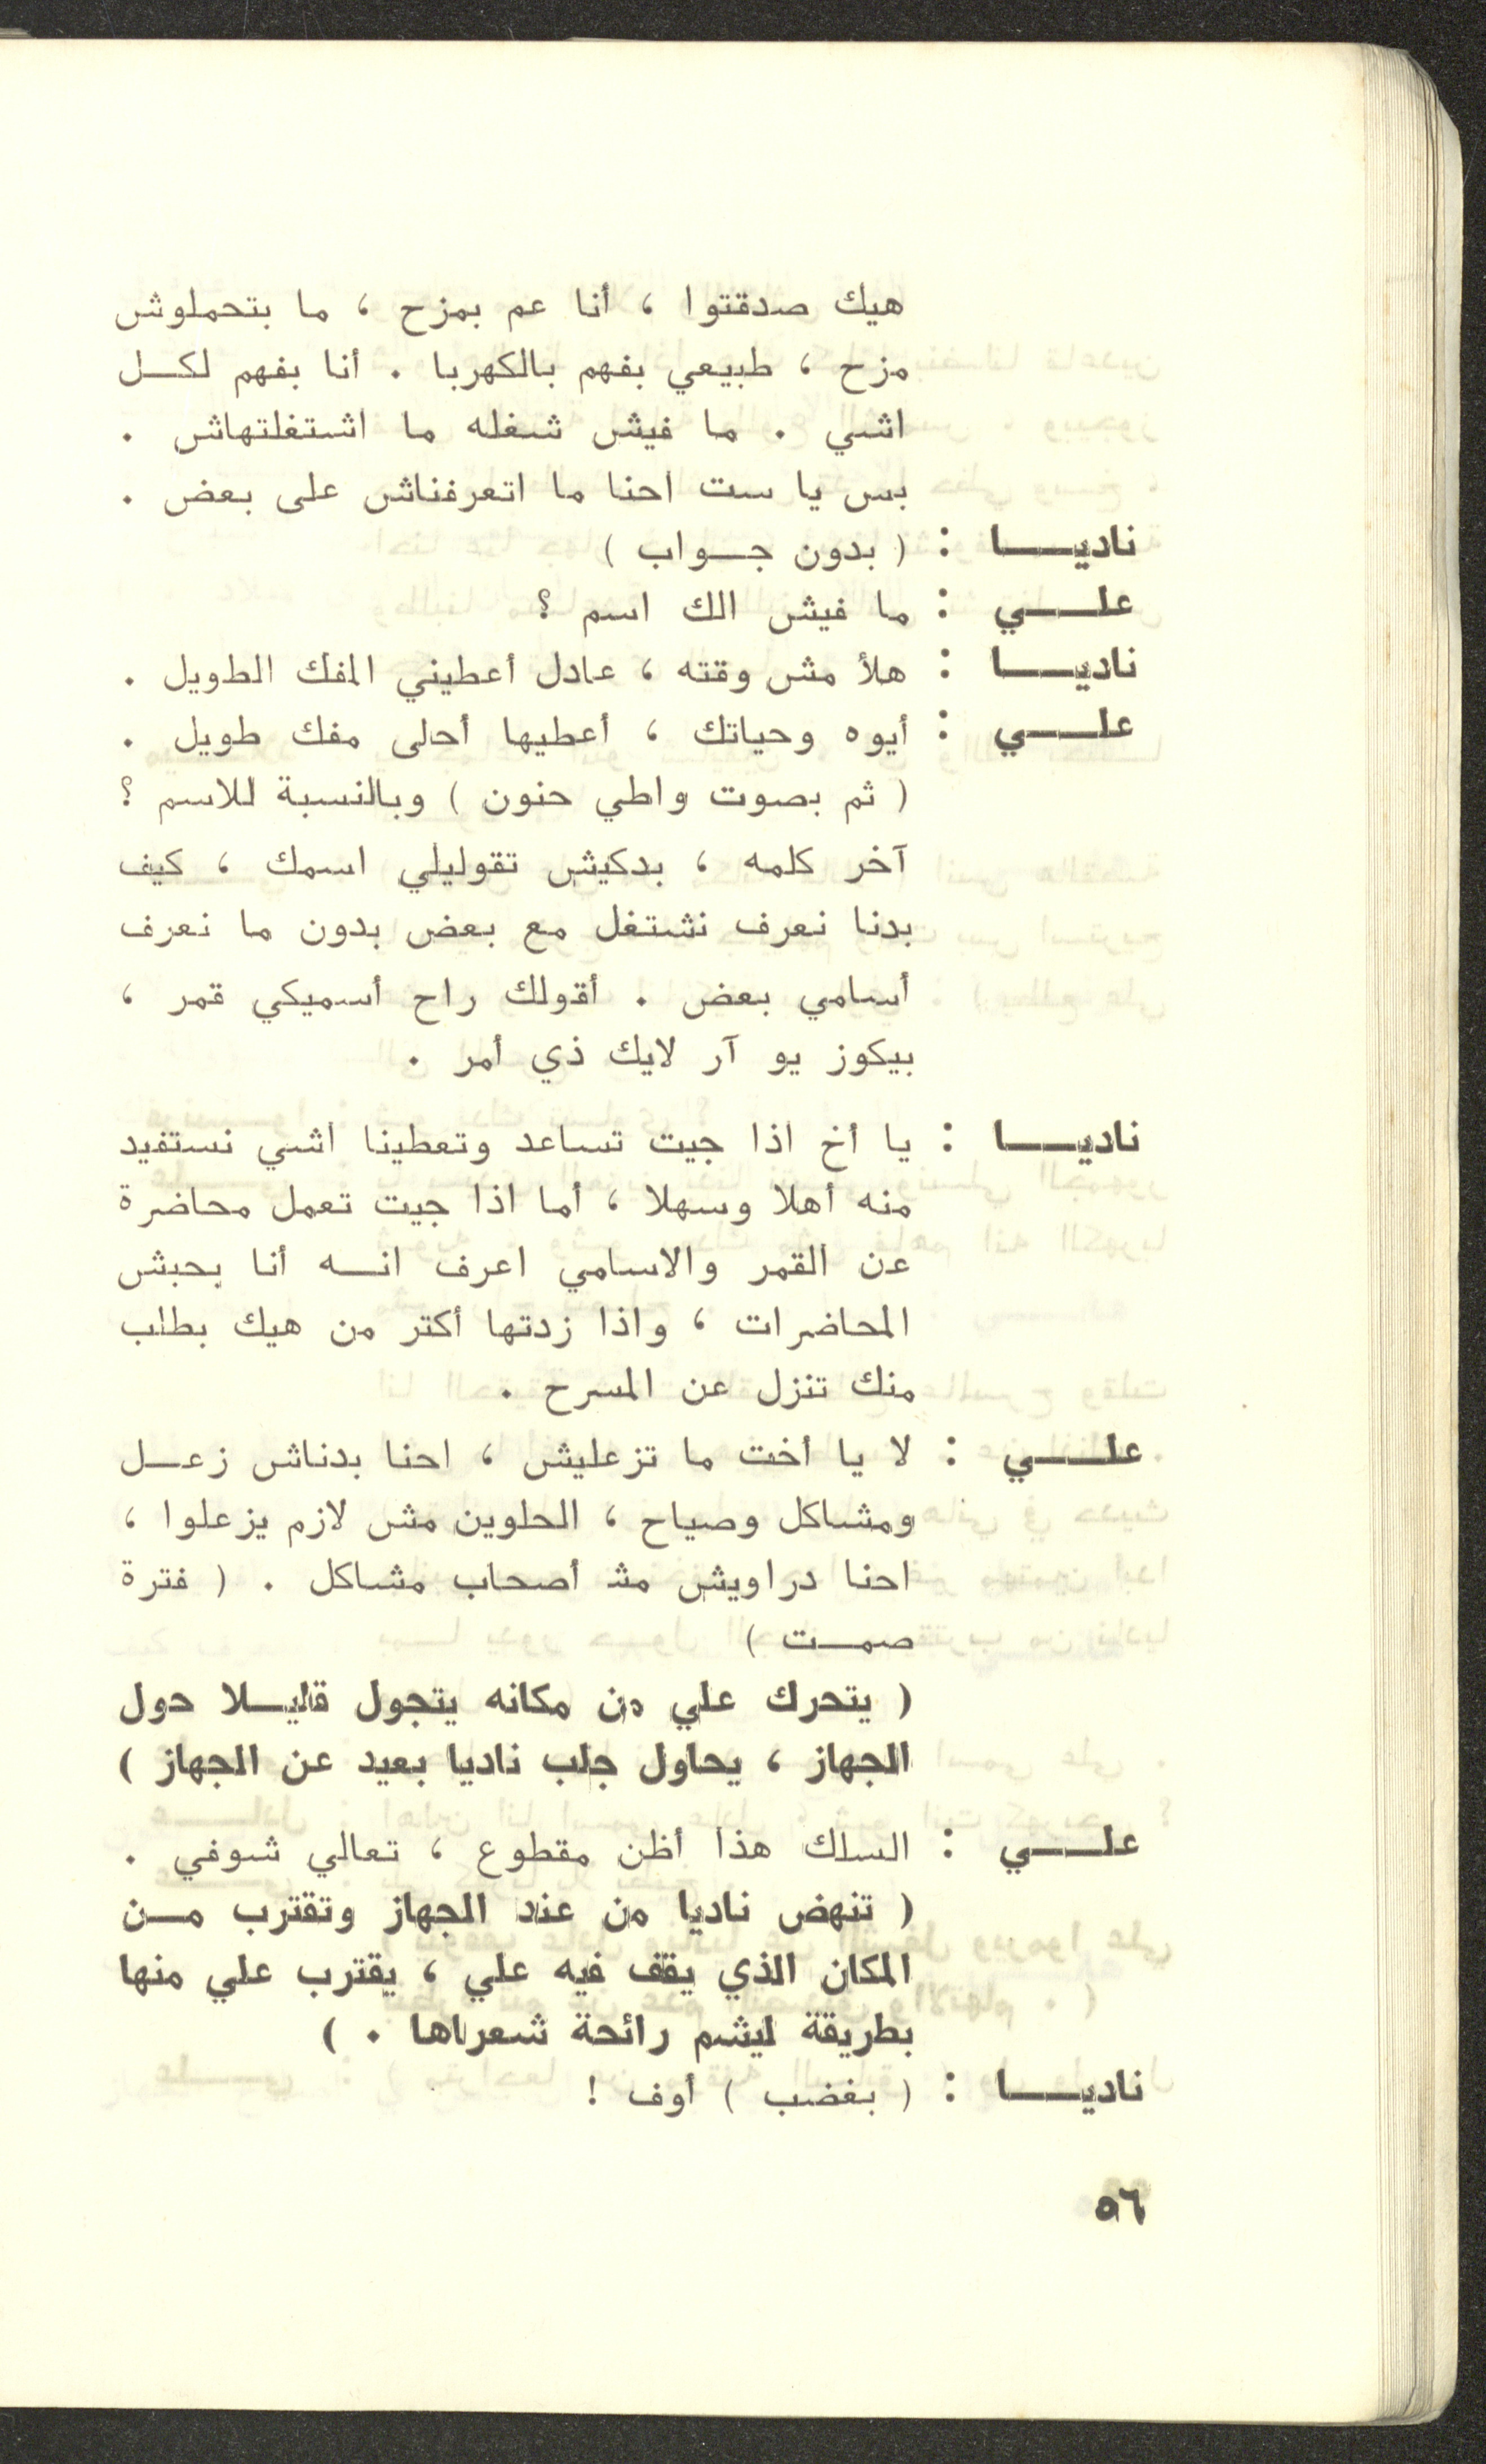 هيك صدقتوا ، أنا عم بمزح ، ما بتحملوش
مزح ، طبيعي بفهم بالكهربا . أنا بفهم لكـــل
اشي . ما فيش شغله ما اشتغلتهاش .
بس يا ست احنا ما اتعرفناش على بعض .
ناديـــــا : ( بدون جـــواب )
علـــــي : ما فيش الك اسم ؟
ناديـــــا : هلأ مش وقته ، عادل أعطيني المفك الطويل .
علـــــي : أيوه وحياتك ، أعطيها أحلى مفك طويل .
( ثم بصوت واطي حنون ) وبالنسبة للاسم ؟
آخر كلمه ، بدكيش تقوليلي اسمك ، كيف
بدنا نعرف نشتغل مع بعض بدون ما نعرف
أسامي بعض . أقولك راح أسميكي قمر ،
بيكوز يو آر لايك ذي أمر .
ناديـــــا : يا أخ اذا جيت تساعد وتعطينا اشي نستفيد
منه أهلا وسهلا ، أما اذا جيت تعمل محاضرة
عن القمر والاسامي اعرف انـــه أنا بحبش
المحاضرات ، واذا زدتها أكتر من هيك بطلب
منك تنزل عن المسرح .
علـــــي : لا يا أخت ما تزعليش ، احنا بدناش زعـــل
ومشاكل وصياح ، الحلوين مش لازم يزعلوا ،
احنا دراويش مش أصحاب مشاكل . ( فترة
صمـــت )
( يتحرك علي من مكانه يتجول قليـــلا حول
الجهاز ، يحاول جلب ناديا بعيد عن الجهاز )
علـــــي : السلك هذا أظن مقطوع ، تعالي شوفي .
( تنهض ناديا من عند الجهاز وتقترب مـــن
المكان الذي يقف فيه علي ، يقترب علي منها
بطريقة ليشم رائحة شعراها . )
ناديـــــا : ( بغضب ) أوف !
٥٦